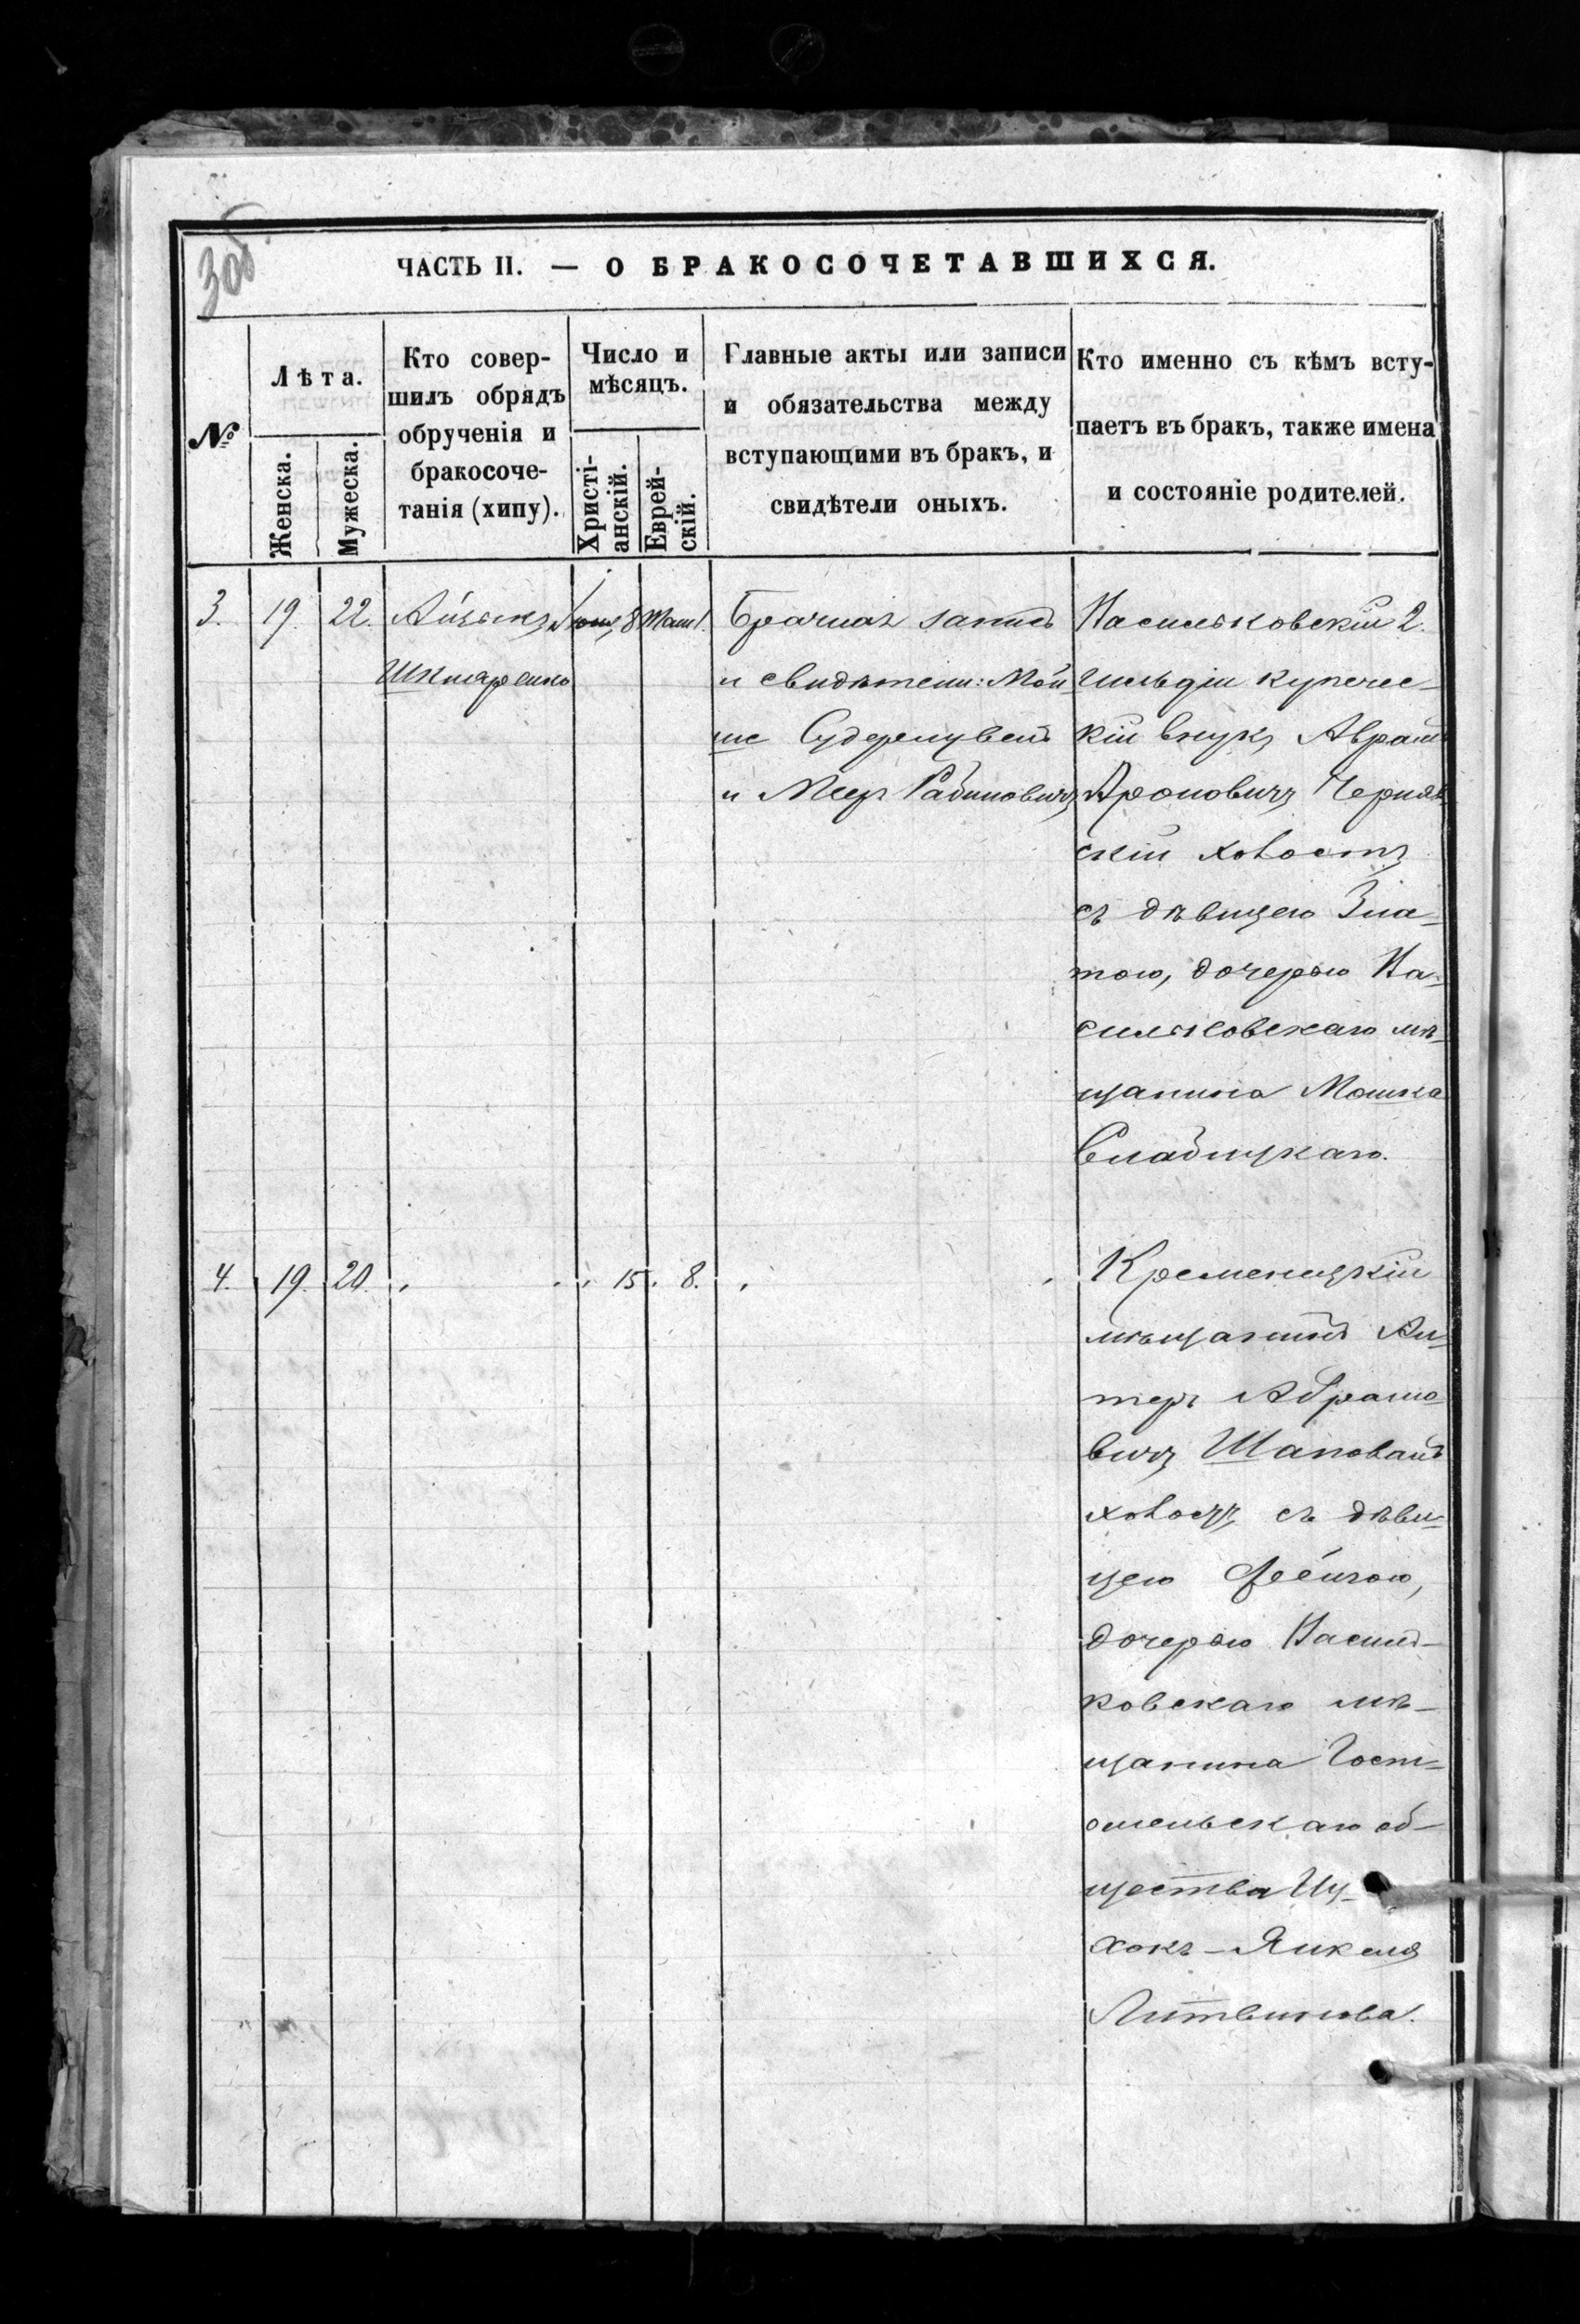 30об.
ЧАСТЬ II. — О БРАКОСОЧЕТАВШИХСЯ.
№
Лѣта.
Женска.
Мужеска.
Кто совер-
шилъ обрядъ
обрученія и
бракосоче-
танія (хипу).
Число и
мѣсяцъ.
Христі-
анскій.
Еврей-
скій.
Главные акты или записи
и обязательства между
вступающими въ бракъ, и
свидѣтели оныхъ.
Кто именно съ кѣмъ всту-
паетъ въ бракъ, также имена
и состояніе родителей.
3. 19. 22.
Айзикъ
Шкляренко
8 1.
Брачная запись
и свидѣтели: Мой-
ше
и Меер Рабиновичъ
Васильковскій 2.
гильдіи купечес-
кій внукъ Аврам
Ароновичъ Черняв
скій холостъ
съ дѣвицею Зла-
тою, дочерью Ва-
сильковскаго мѣ-
щанина Мошка
Слабицкаго.
4. 19. 20. " " " 15. 8. " "
Кременецкій
мѣщанинъ Ал-
теръ Абрамо
вичъ Шаповалъ
холостъ съ дѣви-
цею Фейгою,
дочерью Василь-
ковскаго мѣ-
щанина Гост-
омельскаго об-
щества Иц-
хокъ-Янкеля
Литвинова.